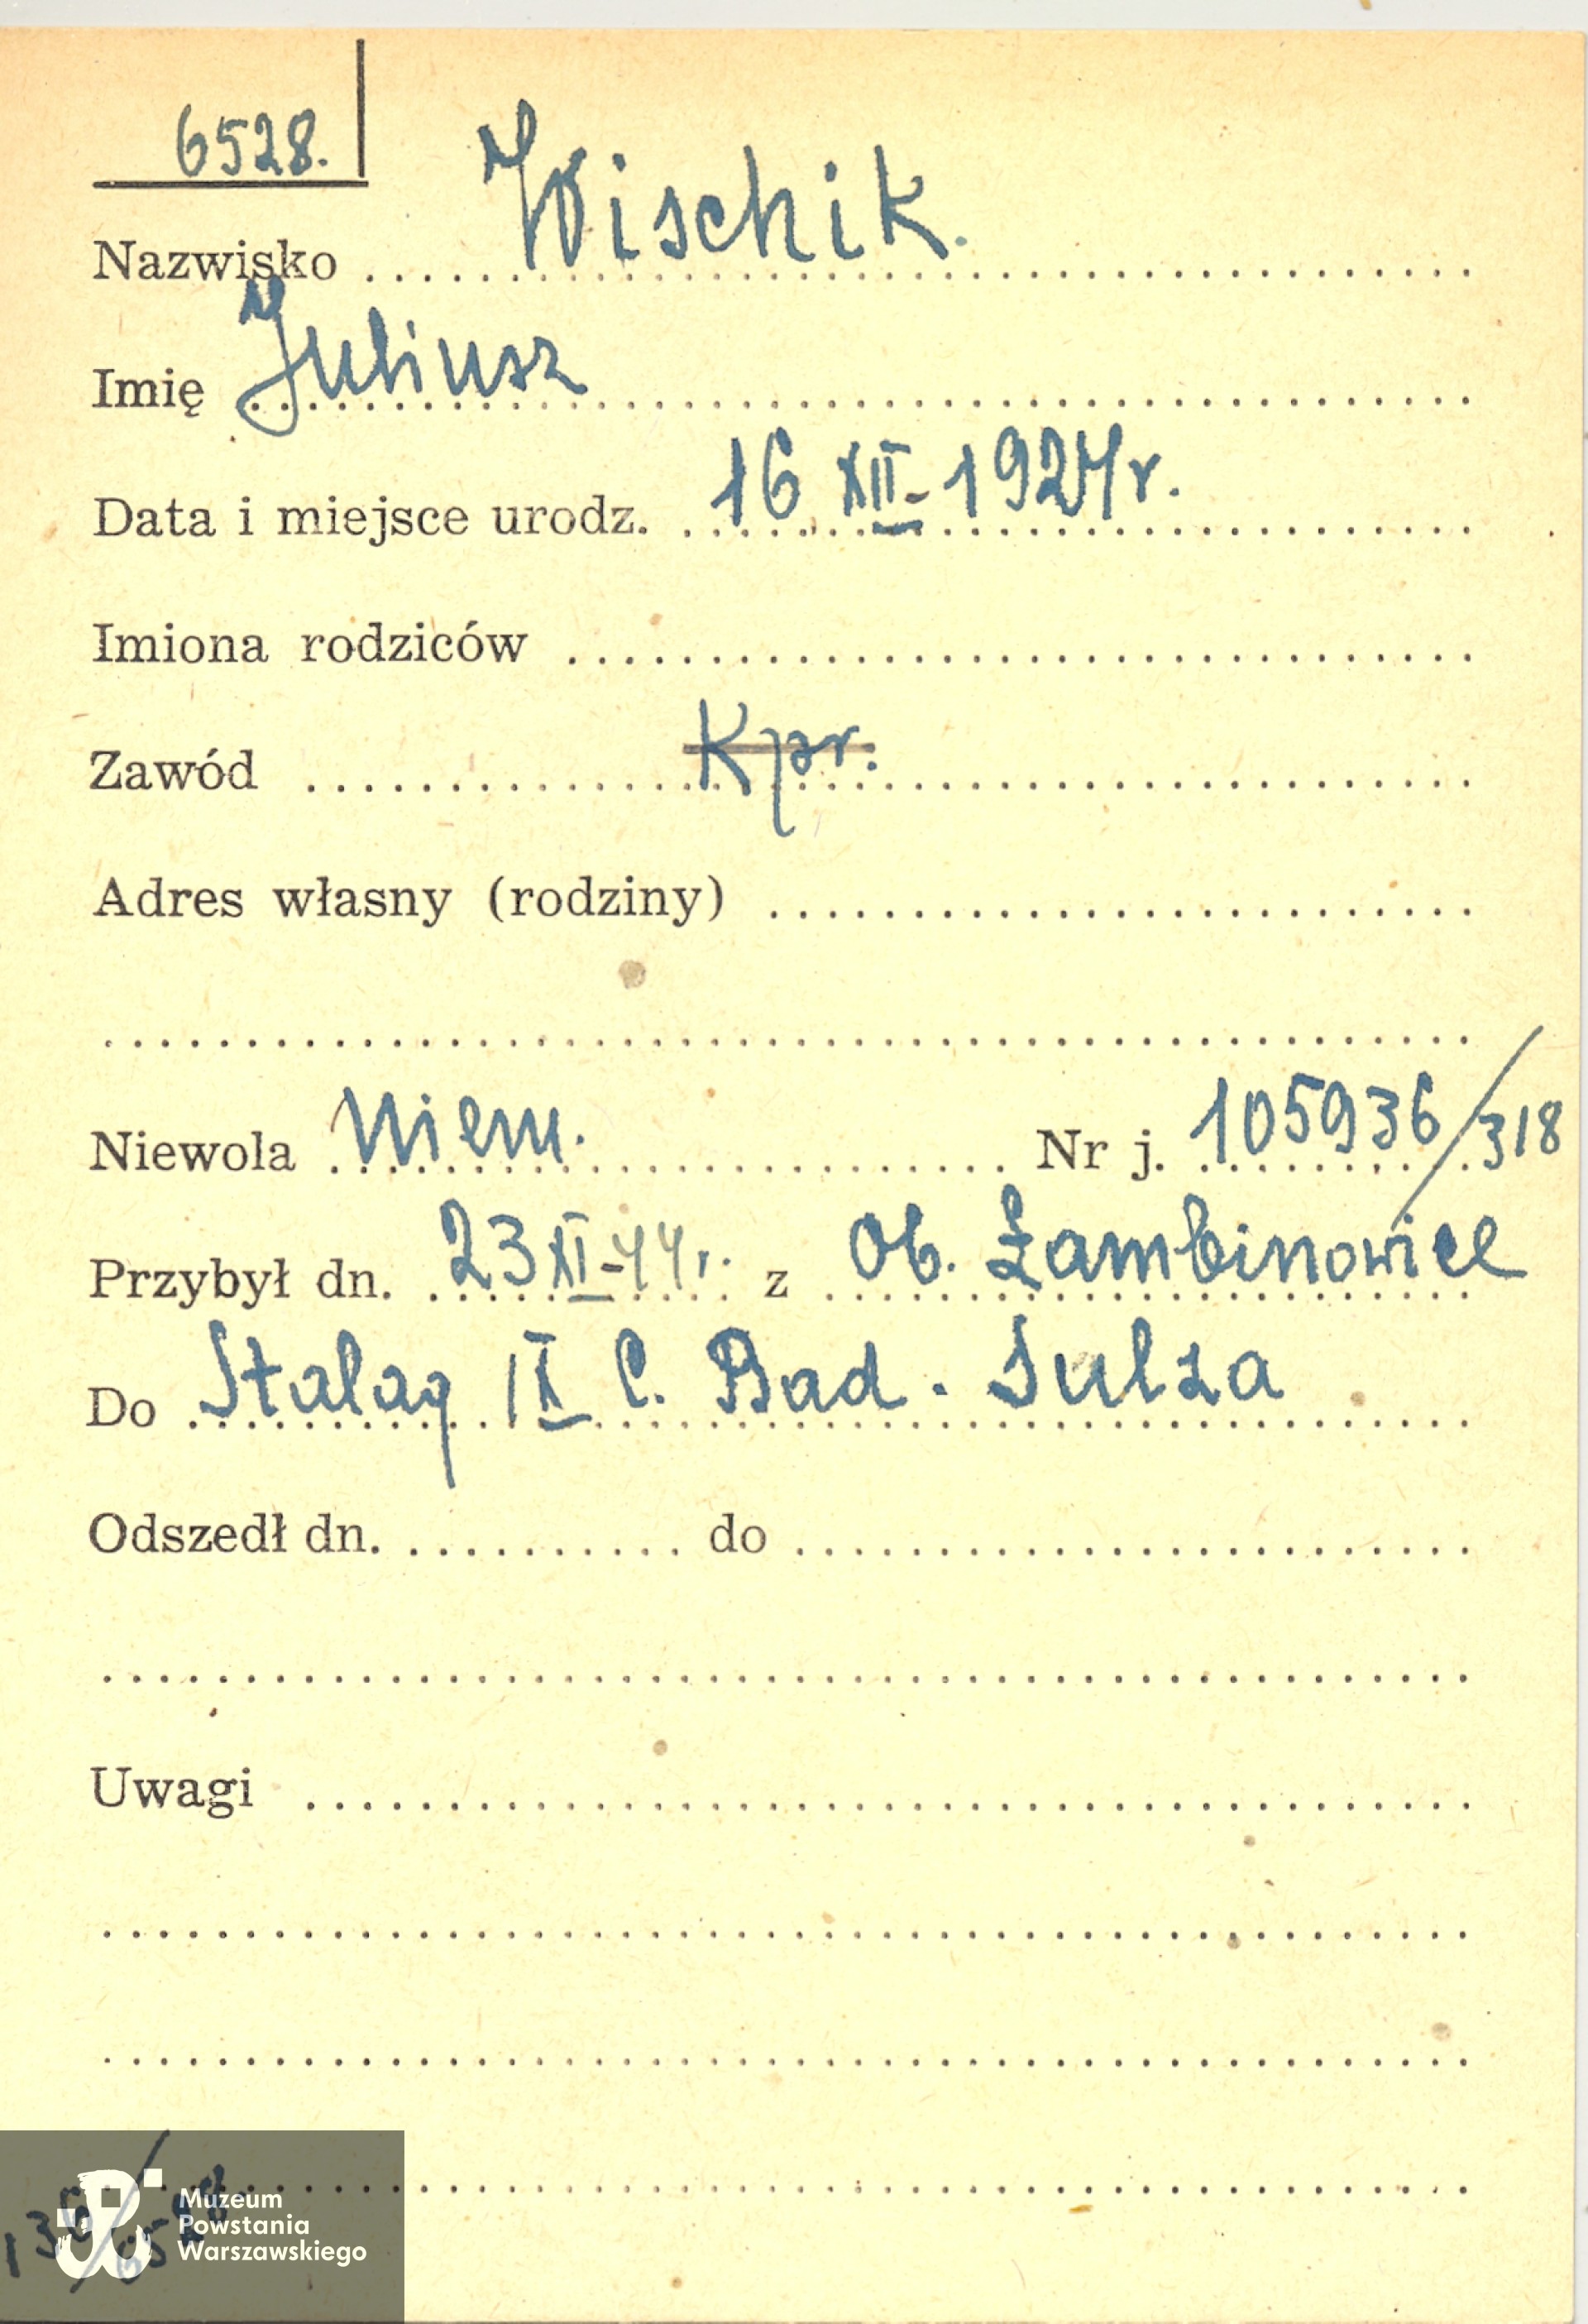 6528.
Nazwisko Wischik.
Imię Juliusz
Data i miejsce urodz. 16 XII - 1924 r.
Imiona rodziców
Zawód Kpr.
Adres własny (rodziny)
Niewola Niem. Nr j. 105936/318
Przybył dn. 23 XI-44r. z Ob. Łambinowice
Do Stalag IX C. Bad. Sulza
Odszedł dn. do
Uwagi
Muzeum
Powstania
Warszawskiego